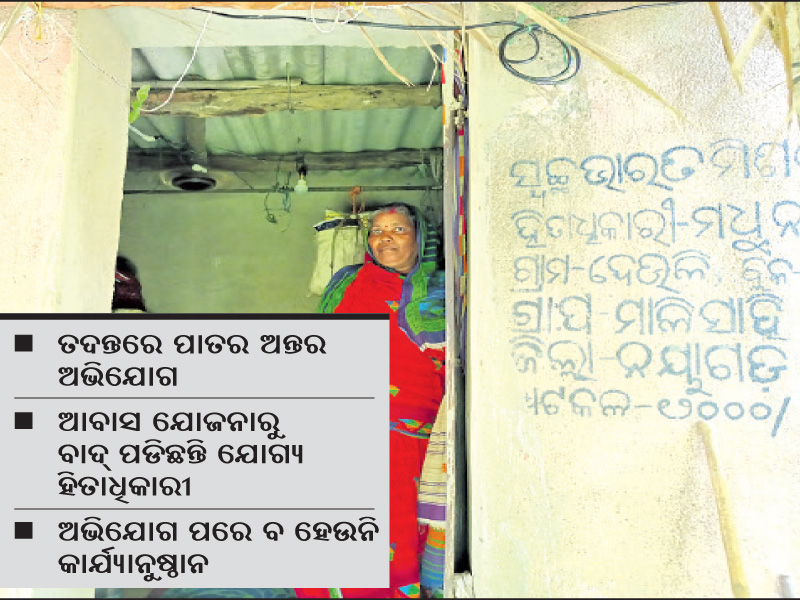 ■ ତଦନ୍ତରେ ପାତର ଅନ୍ତର
ଅଭିଯୋଗ
■ ଆବାସ ଯୋଜନାରୁ
ବାଦ୍ ପଡିଛନ୍ତି ଯୋଗ୍ୟ
ହିତାଧିକାରୀ
■ ଅଭିଯୋଗ ପରେ ବ ହେଉନି
କାର୍ଯ୍ୟାନୁଷ୍ଠାନ
ସ୍ୱଚ୍ଛ ଭାରତ
ହିତାଧିକାରୀ-ମଧୁ
ଗ୍ରାମ-ଦେଉଳି
ଗ୍ରା.ପ-ମାଳିସାହି
ଜିଲ୍ଲା-ନୟାଗଡ଼
-୧୨୦୦୦/